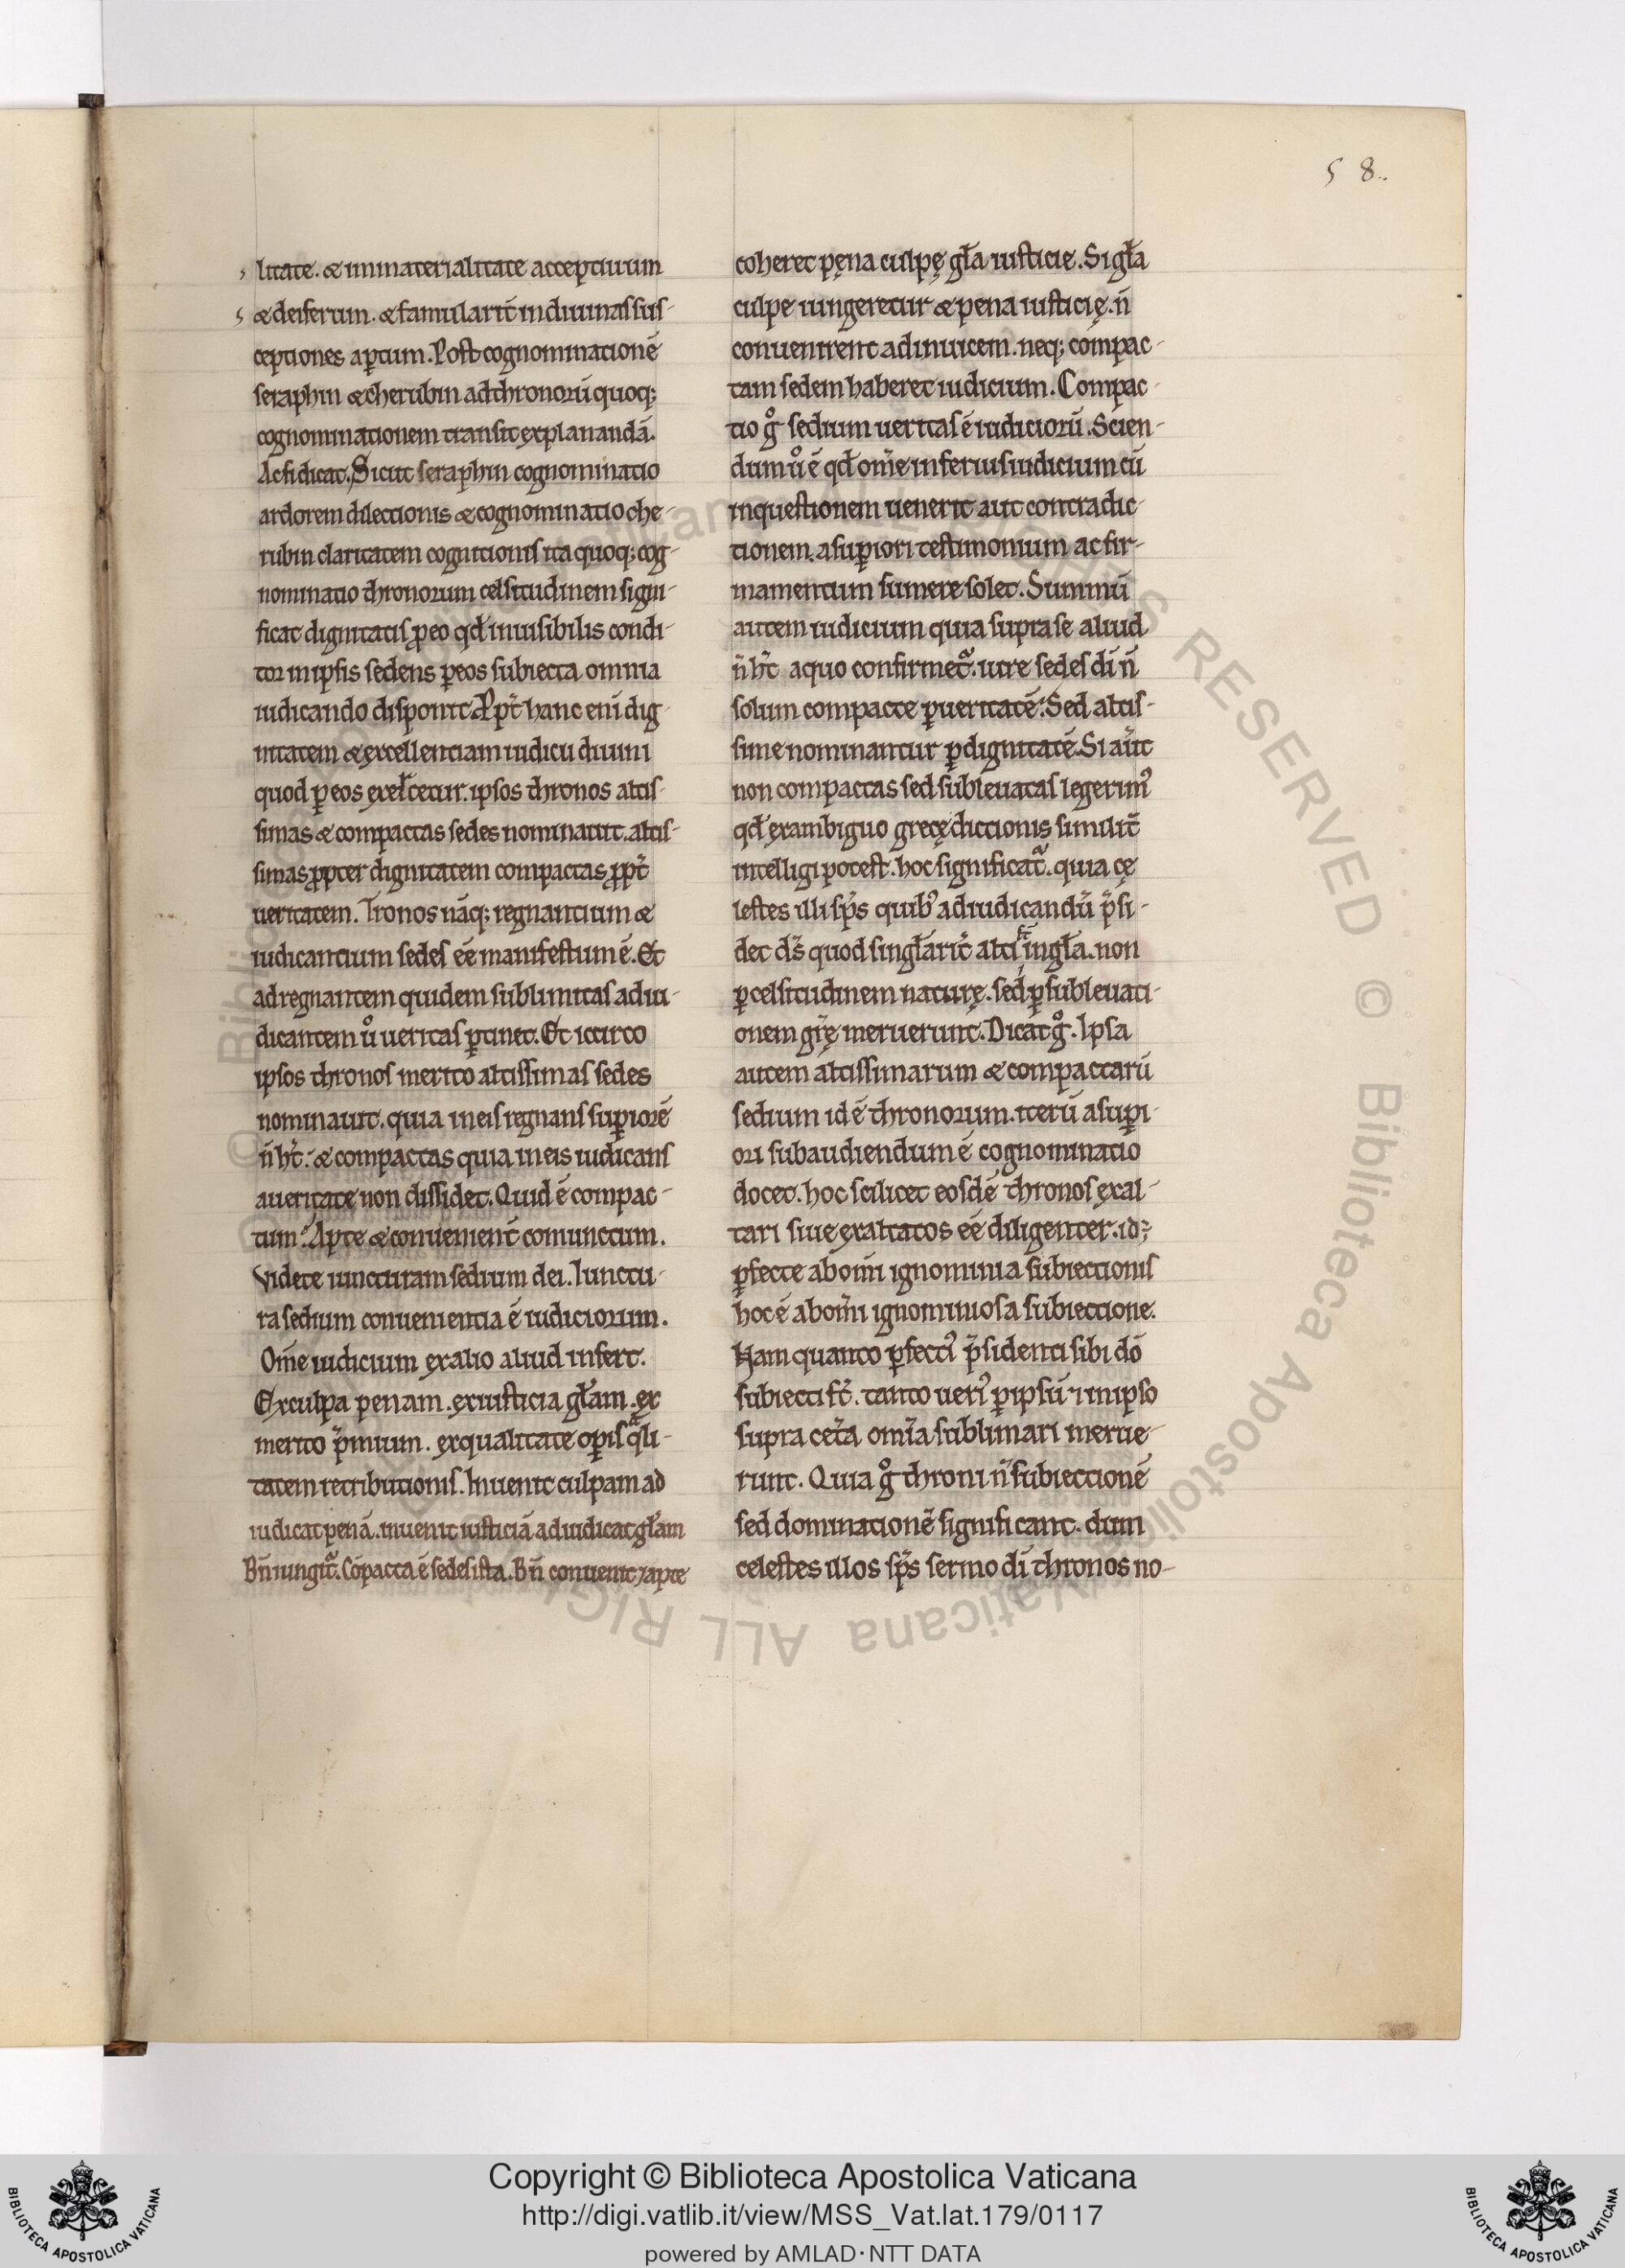 58.
litate. & inmaterialitate acceptiuum
& deiferum. & familarit̄ in diuinas sus-
ceptiones aꝑtum. Post cognominationē
seraphin & cherubin ad thronorū quoq;
cognominationem transit explanandā.
Ac si dicat. Sicut seraphin cognominatio
ardorem dilectionis & cognominatio che-
rubin claritatem cognitionis ita quoq; cog-
nominatio thronorum celsitudinem signi-
ficat dignitatis ꝓeo qd̄ inuisibilis condi-
tor in ipsis sedens ꝑeos subiecta omnia
iudicando disponit. Ppt̄ hanc enī dig-
nitatem & excellentiam iudicii diuini
quod ꝑ eos exercetur. ipsos thronos altis-
simas & compactas sedes nominauit. altis-
simas ꝓpter dignitatem compactas ꝓpt̄
ueritatem. Tronos nāq; regnantium &
iudicantium sedes eē manifestum ē. Et
ad regnantem quidem sublimitas ad iu-
dicantem uº ueritas ꝑtinet. Et iccirco
ipsos thronos merito altissimas sedes
nominauit. quia in eis regnans suꝑiorē
n̄ ht̄. & compactas quia in eis iudicans
a ueritate non dissidet. Quid ē compac-
tum? Apte & conuenient̄ coniunctum.
Videte iuncturam sedium dei. Iunctu-
ra sedium conuenientia ē iudiciorum.
Om̄e iudicium ex alio aliud infert.
Ex culpa penam. ex iusticia gl̄am. ex
merito p̄mium. ex qualitate oꝑis q̄li-
tatem retributionis. Inuenit culpam ad
iudicat penā. inuenit iusticiā adiudicat gl̄am
Bn̄ iungit̄. Cōpacta ē sedes ista. Bn̄ conuenit ⁊ apte
coheret pęna culpę gl̄a iusticię. Si gl̄a
culpe iungeretur & pena iusticię. n̄
conuenirent adinuicem. neq; compac-
tam sedem haberet iudicium. Compac-
tio gº sedium ueritas ē iudiciorū. Scien-
dum uº ē qd̄ om̄e inferius iudicium cū
in questionem uenerit aut contradic-
tionem. a suꝑiori testimonium ac fir-
mamentum sumere solet. Summū
autem iudicium quia supra se aliud
n̄ ht̄ a quo confirmet̄. iure sedes dī n̄
solum compacte ꝑ ueritatē. Sed altis-
sime nominantur ꝑ dignitatē. Si aūt
non compactas sed subleuatas legerimꝰ
qd̄ ex ambiguo grecę dictionis similit̄
intelligi potest. hoc significat̄. quia cę
lestes illi sp̄s quibꝰ ad iudicandū p̄si-
det dn̄s quod singl̄arit̄ alti st̄ in gl̄a. non
ꝑ celsitudinem naturę. sed ꝑ subleuati-
onem gr̄ę meruerunt. Dicat gº. Ipsa
autem altissimarum & compactarū
sedium id ē thronorum. iterū a suꝑi-
ori subaudiendum ē cognominatio
docet. hoc scilicet eosdē thronos exal-
tari siue exaltatos eē diligenter. id;
ꝑfecte ab om̄i ignominia subiectionis
hoc ē ab om̄i ignominiosa subiectione.
Nam quanto ꝑfectiꝰ p̄sidenti sibi dō
subiecti st̄. tanto ueriꝰ ꝑ ipsū ⁊ in ipso
supra cet̄a om̄ia sublimari merue-
runt. Quia gº throni n̄ subiectionē
sed dominationē significant. dum
celestes illos sp̄s sermo dī thronos no-
© Biblioteca Apostolica Vaticana ALL RIGHTS RESERVED © Biblioteca Apostolica Vaticana ALL RIGHTS RESERVED
Copyright © Biblioteca Apostolica Vaticana
http://digi.vatlib.it/view/MSS_Vat.lat.179/0117
powered by AMLAD·NTT DATA
BIBLIOTECA APOSTOLICA VATICANA
BIBLIOTECA APOSTOLICA VATICANA